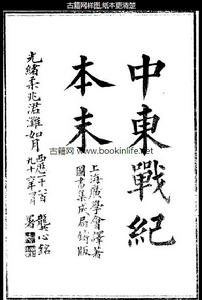 古籍网样图,纸本更清楚
中東戰紀
本末
上海廣學會譯著
圖書集成局鑄版
光緒柔兆涒灘如月
西歷一千八百
九十六年月
龔心銘署
古籍网 www.bookinlife.net